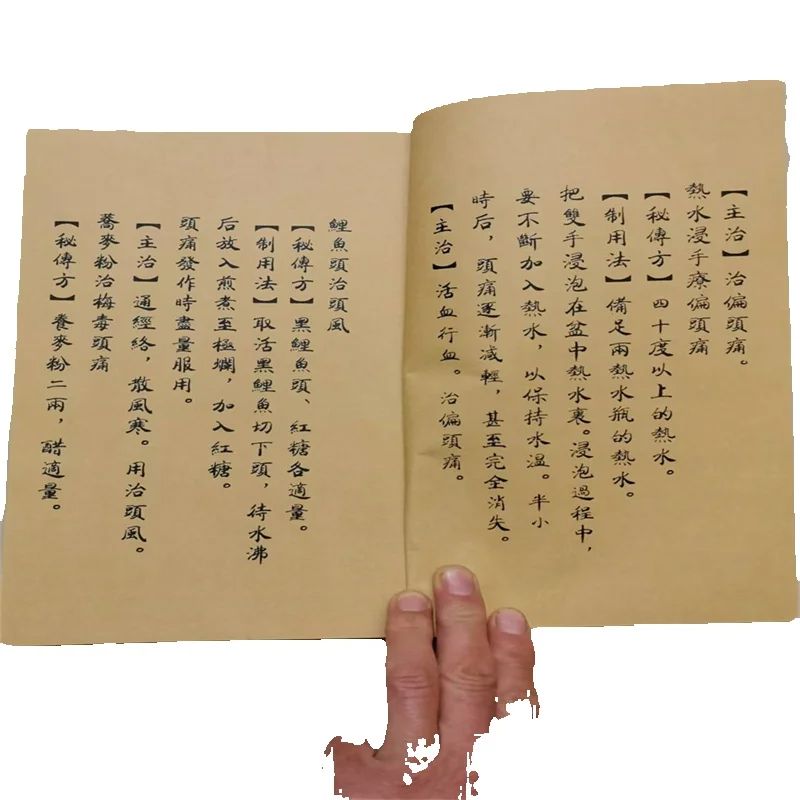 【主治】治偏頭痛。
熱水浸手療偏頭痛
【秘傳方】四十度以上的熱水。
【制用法】備足兩熱水瓶的熱水。
把雙手浸泡在盆中熱水裏。浸泡過程中,
要不斷加入熱水,以保持水溫。半小
時后,頭痛逐漸減輕,甚至完全消失。
【主治】活血行血。治偏頭痛。
鯉魚頭治頭風
【秘傳方】黑鯉魚頭、紅糖各適量。
【制用法】取活黑鯉魚切下頭,待水沸
后放入煎煮至極爛,加入紅糖。
頭痛發作時盡量服用。
【主治】通經絡,散風寒。用治頭風。
蕎麥粉治梅毒頭痛
【秘傳方】養麥粉二兩,醋適量。